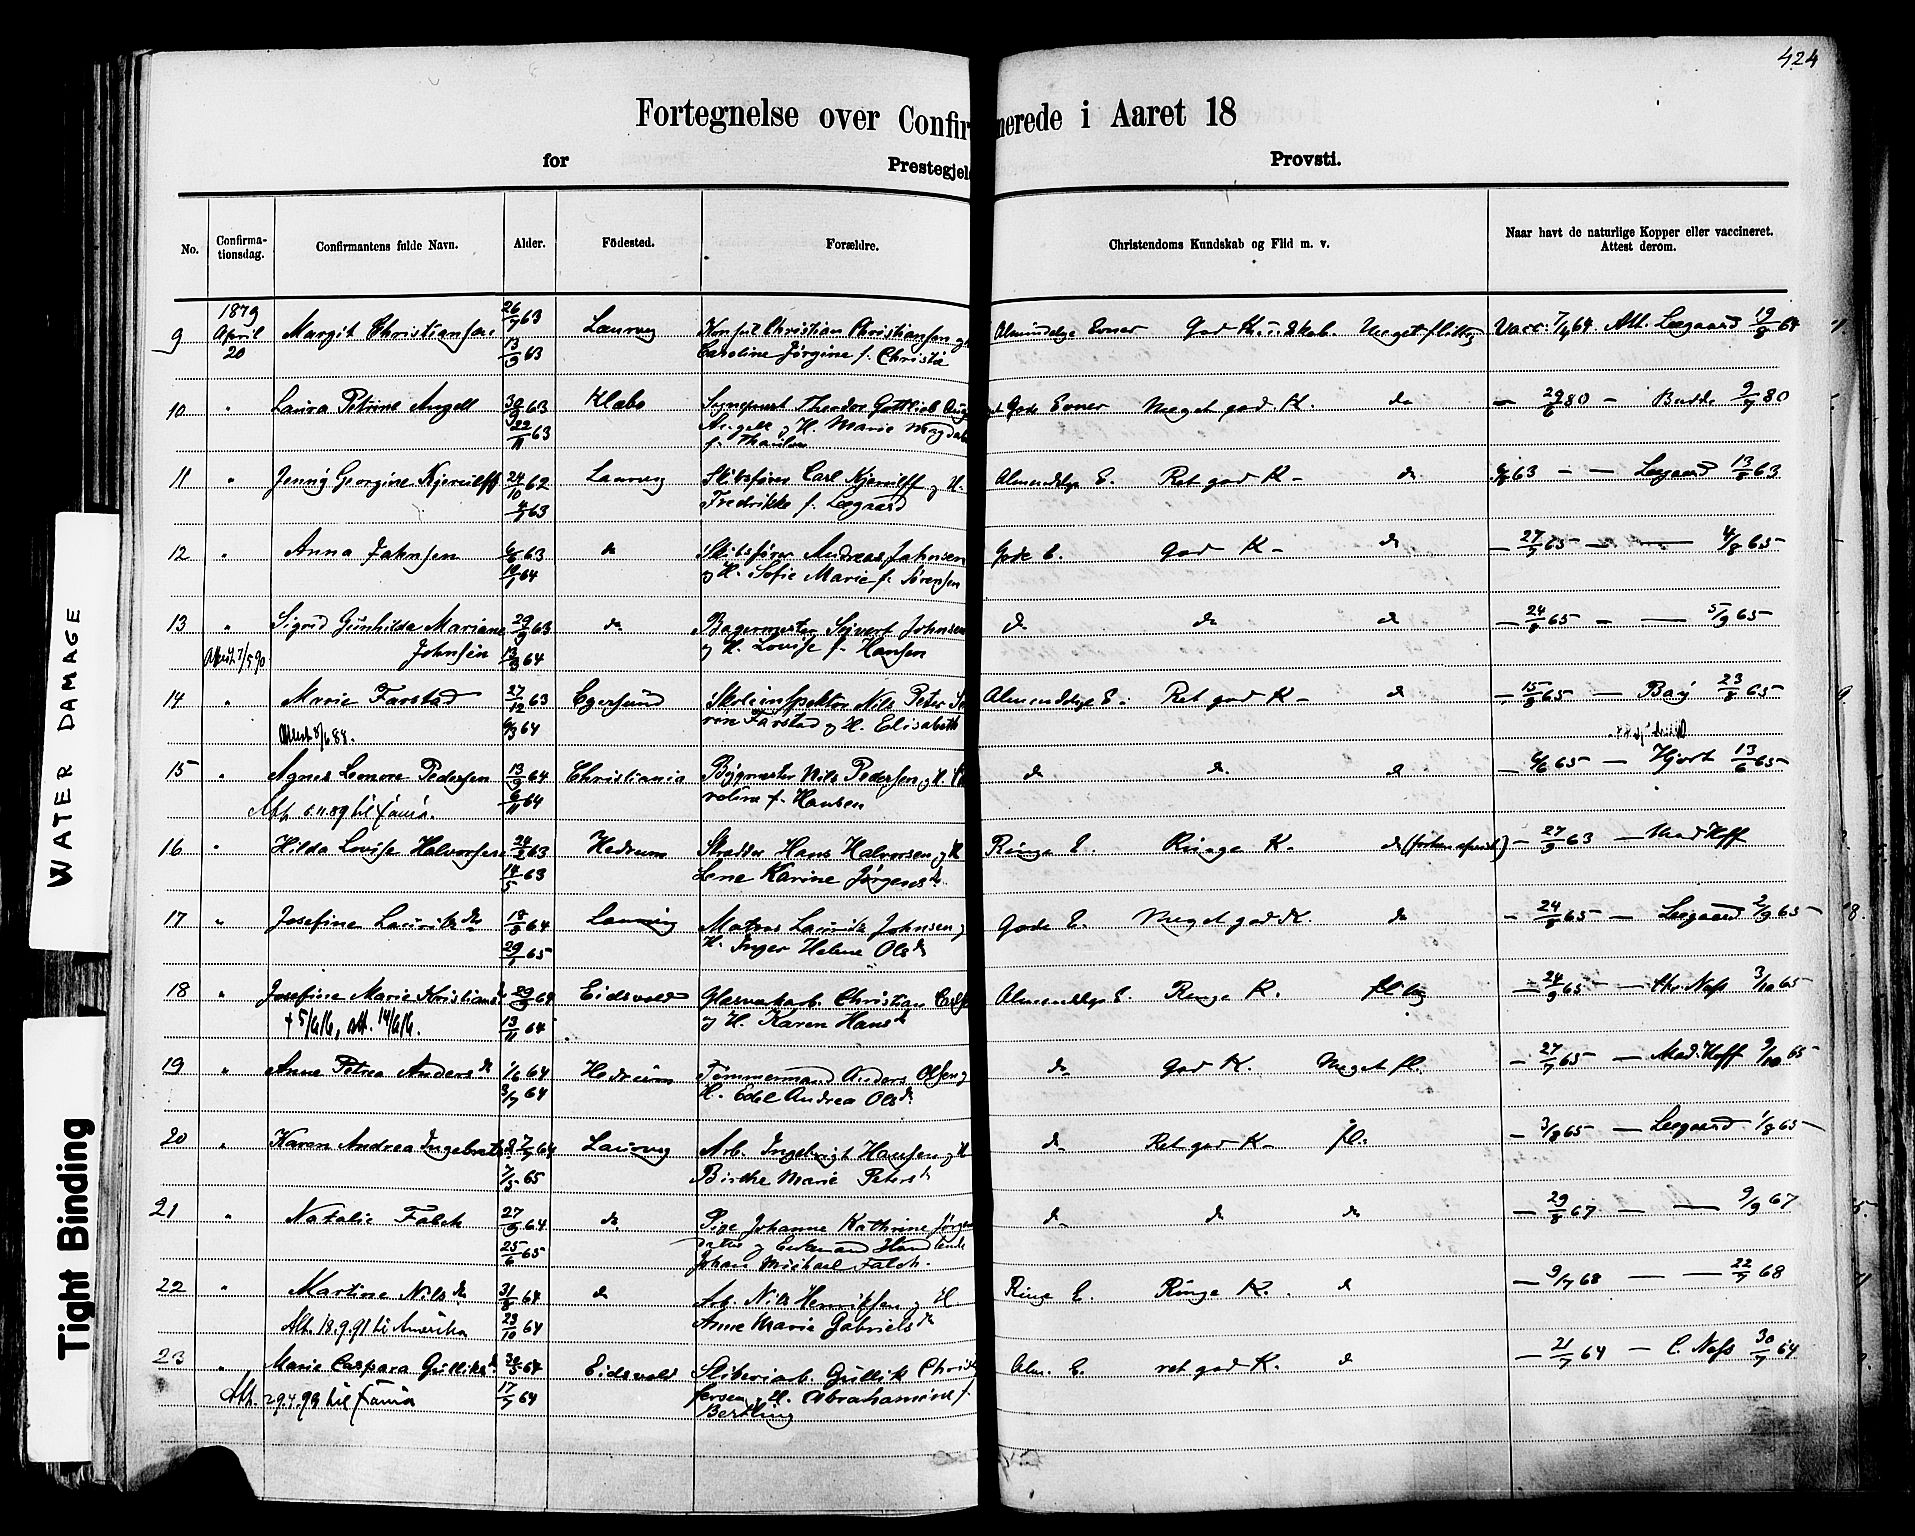 424
Fortegnelse over Confirmerede i Aaret 18
for Prestegjeld Provsti.
No. Confirmationsdag. Confirmantens fulde Navn. Alder. Födested. Forældre. Christendoms Kundskab og Flid m. v. Naar havt de naturlige Kopper eller vaccineret. Attest derom.
9 1879 April 20 Margit Christiansen 26/7 63 Laurvig Konsul Christian Christiansen og Almindelige Evner God K. Meget flittig Vacc. 7/4 64 Att. Lægaard 19/8 64
13/9 63 Caroline Jørgine f. Christie
10 " Laura Petrine Angell 30/9 63 Klæbo Theodor Gottlieb Gode Evner Meget god K. do — 29/6 80 — Budde 9/7 80
22/11 63 Angell og H. Marie Magdal
f. Thaulow
11 " Jenny Georgine Kjerulff 24/10 62 Laurvig Skibsfører Carl Kjerulff og H. Almindelige E. Ret god K — do 63 — — Lægaard 13/8 63
63 Fredrikke f. Lægaard
12 " Anna Jahnsen 63 do Skibsfører Andreas Jahnsen Gode E. God K — do — 27/7 65 — — 4/8 65
64 og H. Sofie Marie f. Sørensen
13 " Sigrid Gunhilda Mariane 29/9 63 do Bagermester Sivert Johnsen do do do — 24/8 65 — — 5/9 65
Attest 7/5 90 Johnsen 13/3 64 og H. Lovise f. Hansen
14 " Marie Farstad 27/12 63 Egersund Skoleinspektør Nils Peter Sø Almindelige E. Ret god K — do — 15/8 65 — Bay 23/8 65
Attest 8/6 84. 6/3 64 ren Farstad og H. Elisabeth
15 " Agnes Lenore Pedersen 13/9 64 Christiania Bygmester Nils Pedersen og H. do do do — 6/6 65 — Hjort 13/6 65
Att. 6.11.89 til 6/11 64 f. Hansen
16 " Hilda Lovise Halvorsen 63 Hedrum Skrædder Hans Halvorsen og H Ringe E. Ringe K. do — 27/9 63 — Mad Hoff
14/5 63 Lene Karine Jørgensdr
17 " Josefine Lauritzdr 18/8 64 Laurvig Matros Lauritz Johnsen og Gode E. Meget god K. do — 24/8 65 — Lægaard 2/9 65
65 H. Inger Helene Olsdr
18 " Josefine Marie Kristians 29/9 64 Eidsvold Glasværkarb. Christian Carls Almindelige E. Ringe K. flittig — 24/9 65 — Næss 3/10 65
+ 5/6 16, att. 14/6 16. 13/11 64 og H. Karen Hansdr
19 " Anne Petrea Andersdr 1/6 64 Hedrum Tømmermand Anders Olsen og do God K. Meget fl. — 27/7 65 — Mad. Hoff 9/10 65
3/7 64 H. Edel Andrea Olsdr
20 " Karen Andrea Ingebrets 64 Laurvig Arb. Ingebrigt Hansen og H do Ret god K — fl. — 3/8 65 — Lægaard 1/8 65
7/5 65 Birthe Marie Petersdr
21 " Natalie Falch 27/9 64 do Pige Johanne Kathrine Jørgens do do do — 29/8 67 — — 9/9 67
25/6 65 datter og
Johan Michael Falch.
22 " Martine Nilsdr 31/8 64 do Arb. Nils Henriksen og H Ringe E. Ringe K. do — 9/7 68 — — 22/7 68
Att. 18.9.91 til Amerika 23/10 64 Anne Marie Gabrielsdr
23 " Marie Caspara Gulliksdr 64 Eidsvold Sliberiarb. Gullik Christ Alm. E. ret god K. do — 21/7 64 — C. Næss 30/7 64
Att. 29.4.99 til 17/7 64 fersen og H. Abrahamine f.
Bertling
WATER DAMAGE
Tight Binding